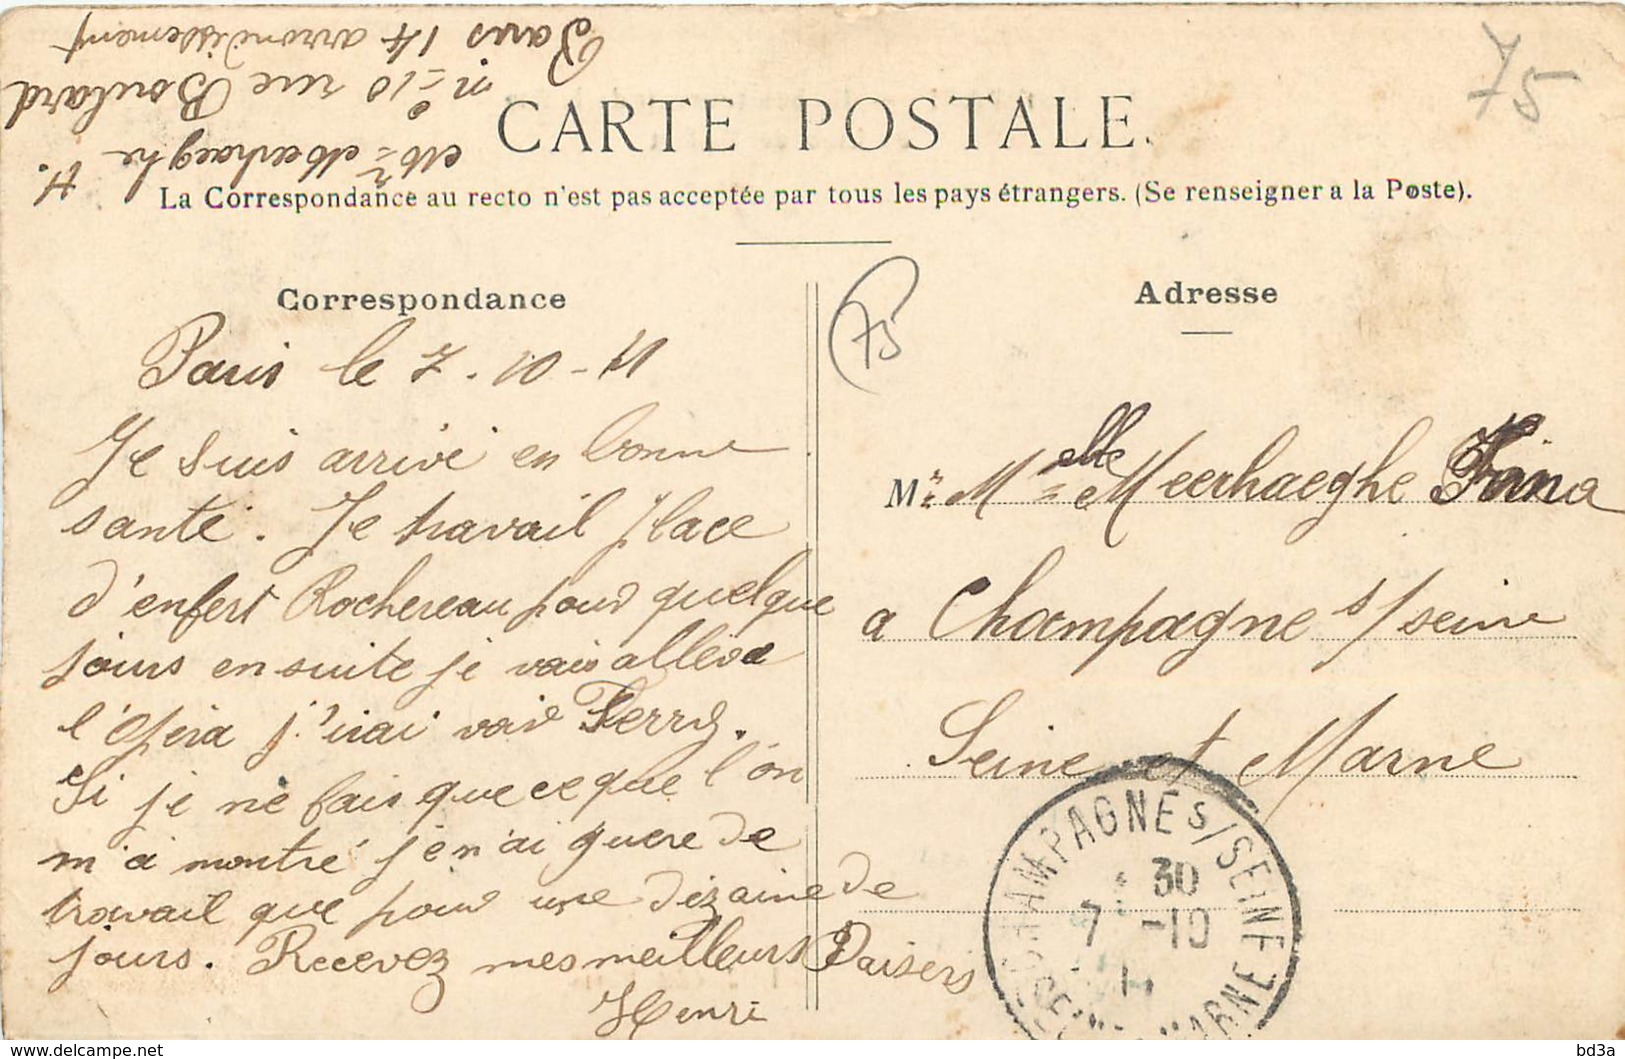 Mr Meerhaeghe H.
n° 10 rue Boulard
Paris 14 arrondissement
75
CARTE POSTALE.
La Correspondance au recto n'est pas acceptée par tous les pays étrangers. (Se renseigner a la Poste).
Correspondance
Paris le 7.10-11
Je suis arrivé en bonne
santé. Je travail place
d'enfert Rochereau pour quelque
jours en suite je vais allé a
l'Opéra j'irai voir Ferry.
Si je ne fais que ce que l'on
m'a montré j'en ai guere de
travail que pour une dizaine de
jours. Recevez mes meilleurs Baisers
Henri
75
Adresse
M. Melle Meerhaeghe
a Champagne s/seine
Seine et Marne
CHAMPAGNE S/SEINE
30
7 -10
MARNE
bd3a
© www.delcampe.net